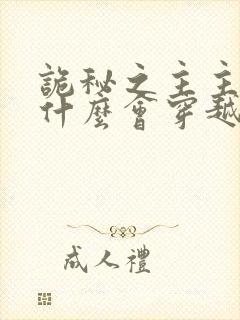 詭秘之主主
什麼會穿越
成人禮